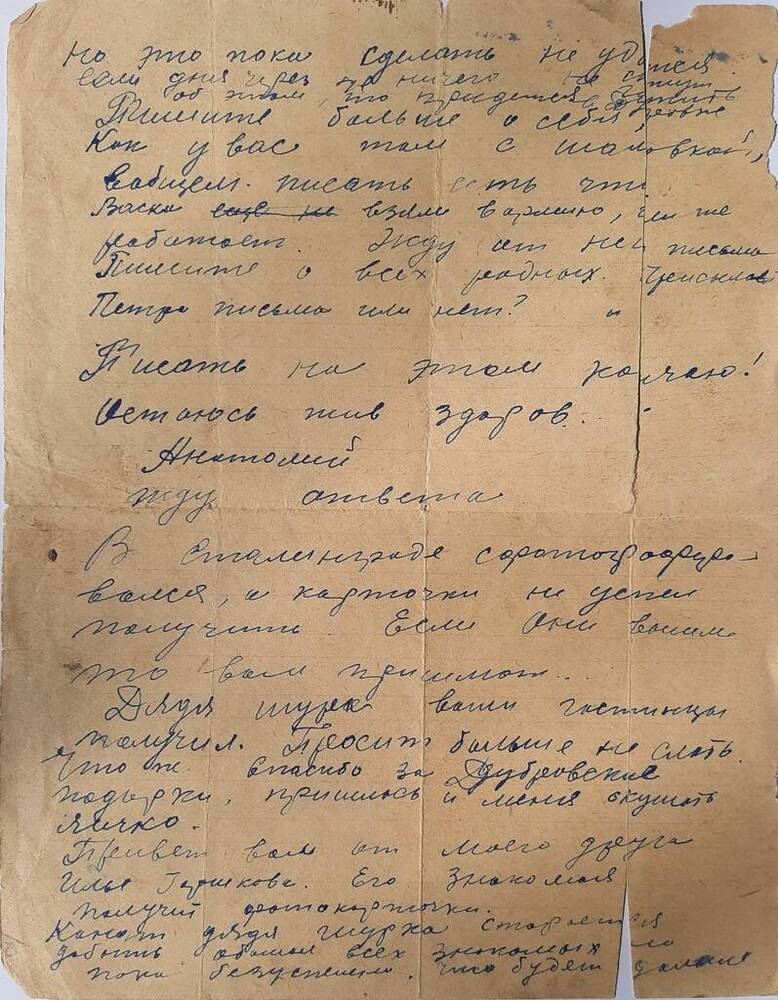 но это пока сделать не удается.
если дня через два ничего не
об этом, то придется служить
Пишите больше о себе,
Как у вас там с
вобщем. писать есть что
Васка еще не взяли в армию, чи же
работает. Жду от неи письма
Пишите о всех родных.
Петра письма или нет?
Писать на этом кончаю!
Остаюсь жив здоров.
Анатолий
жду ответа
В Сталинграде сфотографиро-
вался, а карточки не успел
получить. Если Они вышли
то вам пришлют..
Дядя шурка ваши гостинцы
получил. Просит больше не слать.
Что ж спасибо за Дубровские
подарки, пришлось и меня скушать
яичко.
Привет вам от моего друга
Ильи Горшкова. Его знакомая
получит фотокарточки.
дядя шурка старается
добыть адреса всех знакомых но
пока безуспешно. что будет дальше